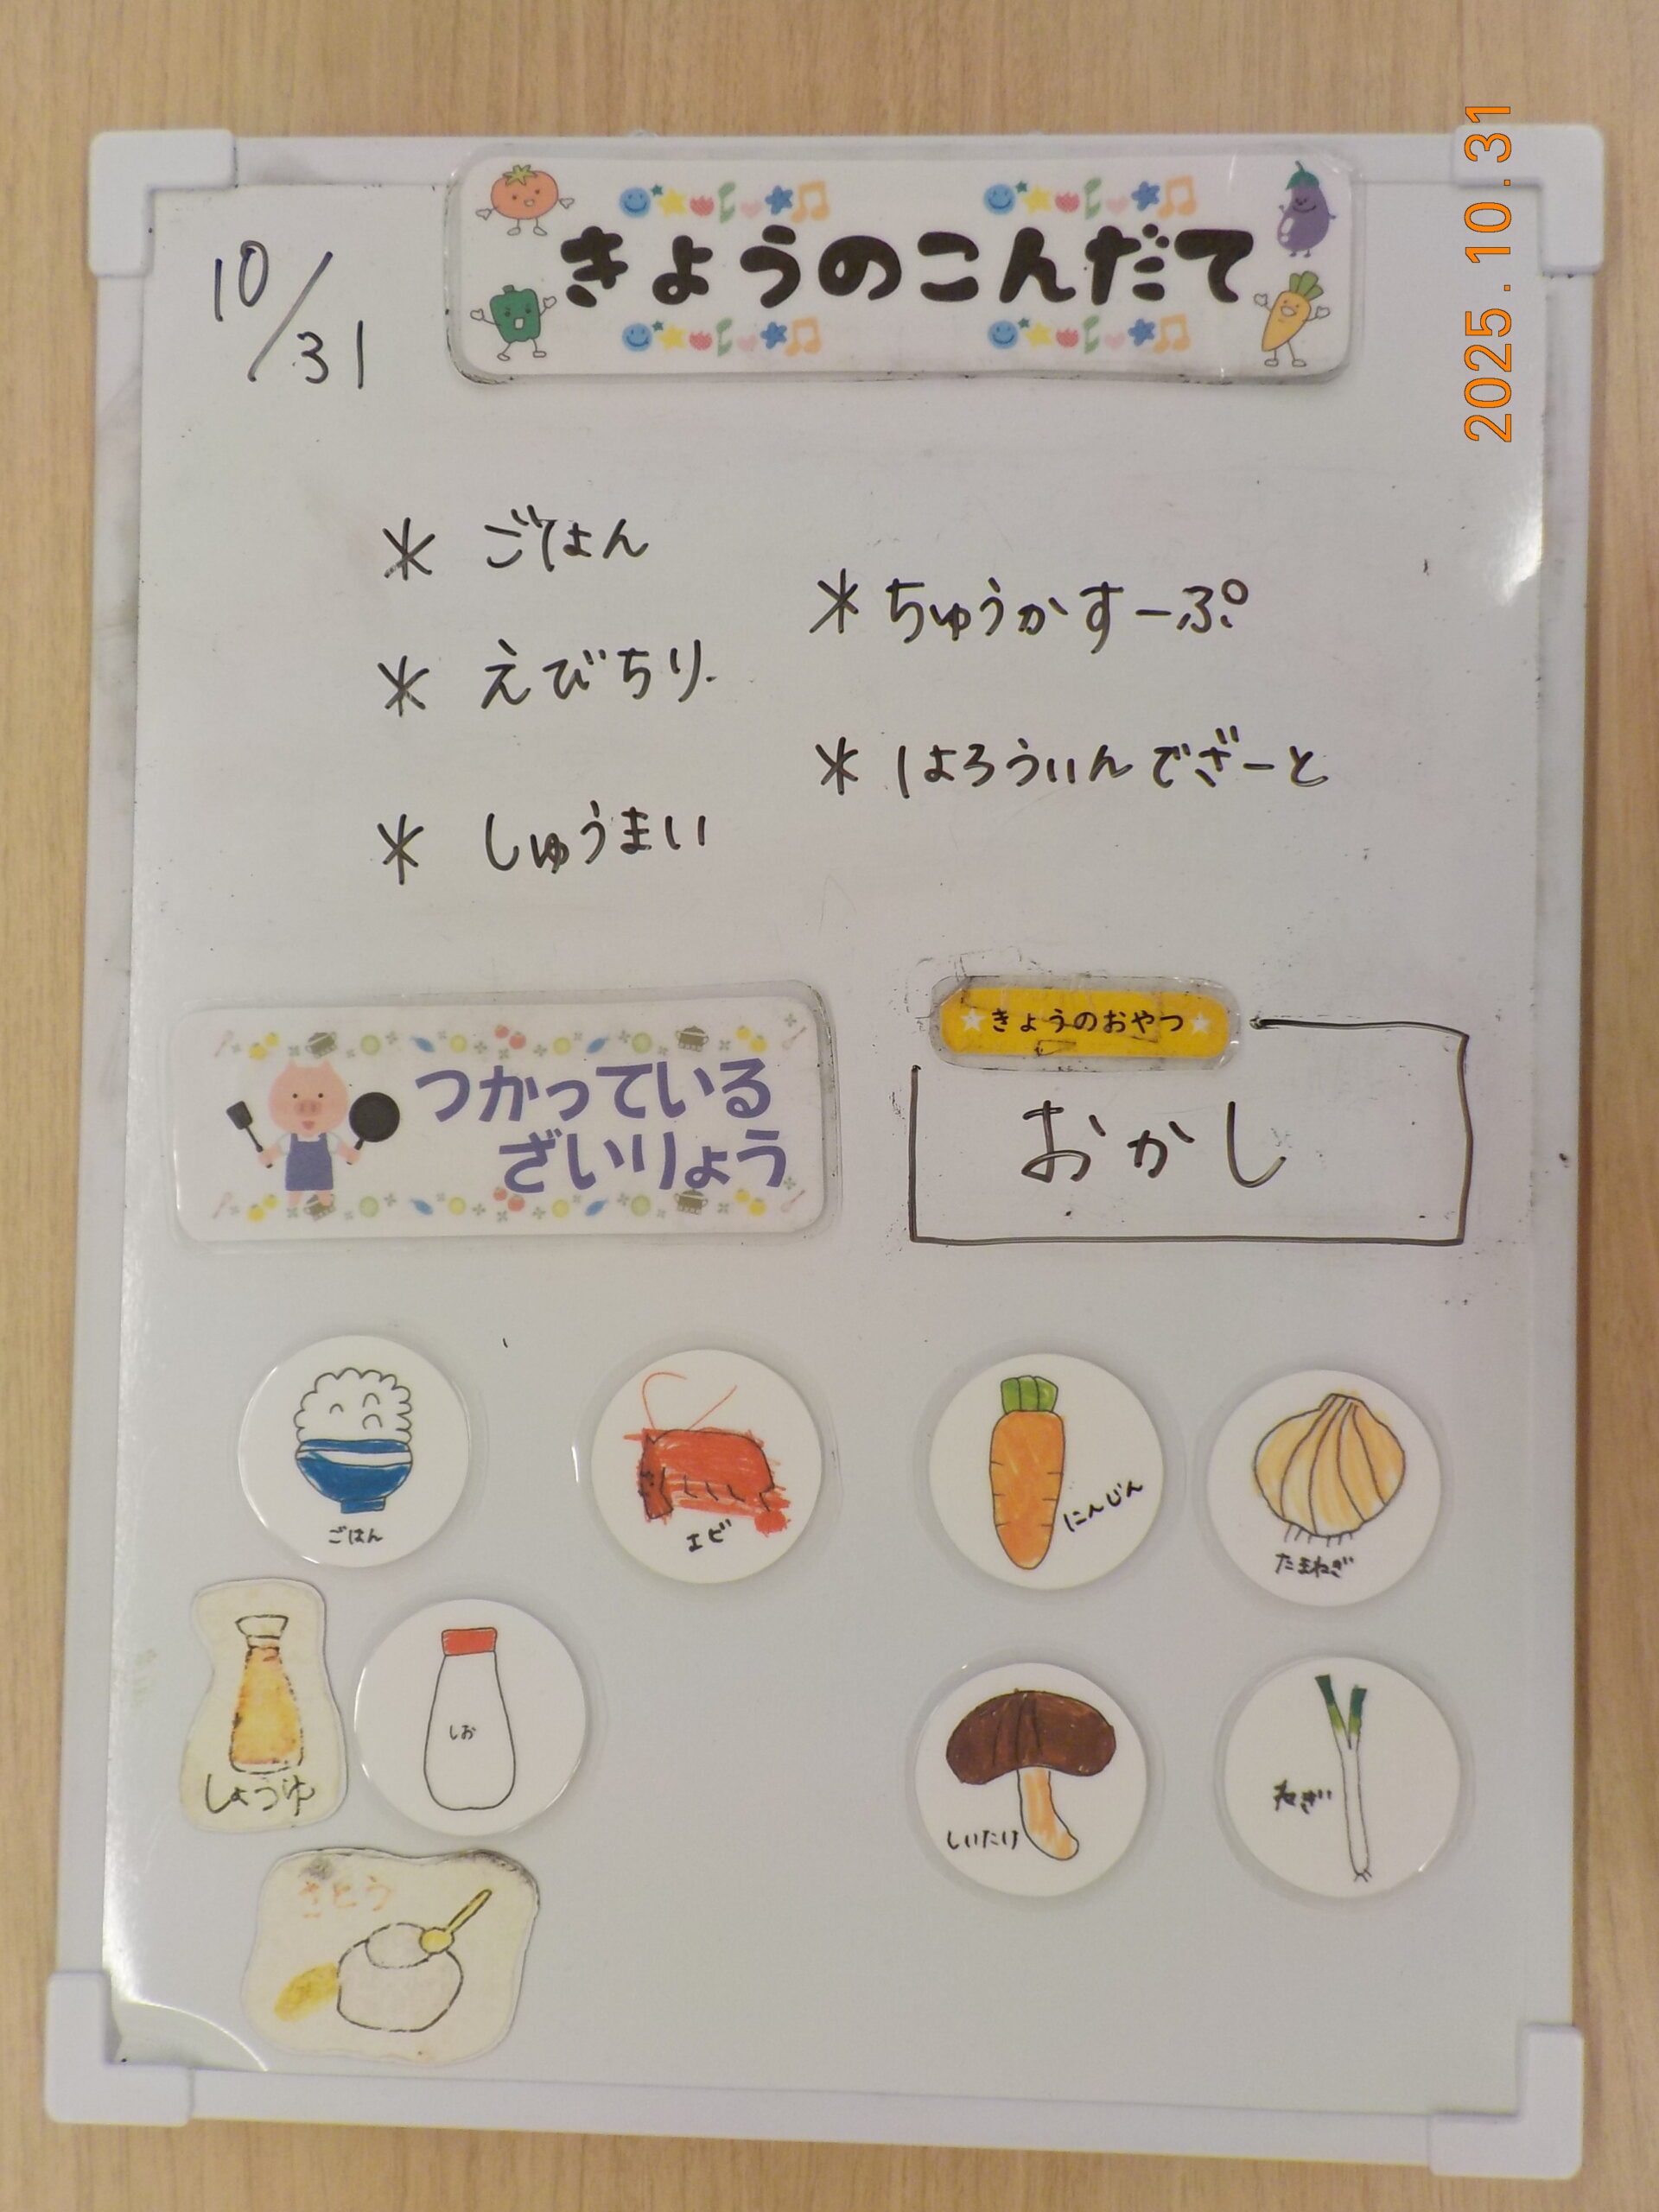 きょうのこんだて
10/31
2025.10.31
* ごはん
* えびちり
* しゅうまい
* ちゅうかすーぷ
* はろうぃんでざーと
つかっている
ざいりょう
きょうのおやつ
おかし
ごはん
エビ
にんじん
たまねぎ
しょうゆ
しお
しいたけ
ねぎ
さとう